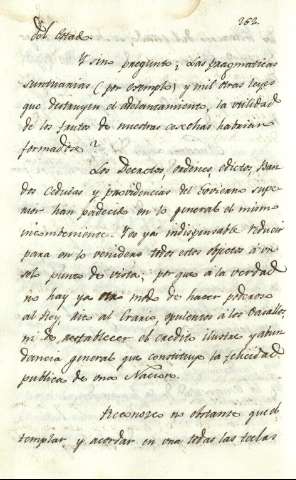 262.
del Estad.
Y sino pregunto; Las pragmaticas
suntuarias (por exemplo) y mil otras leyes
que destruyen el adelantamiento, la utilidad
de los frutos de nuestras cosechas habrian
formadose?
Los Decretos, ordenes, edictos, Ban
dos Cedulas y providencias del Govierno supe
rior han padecido en lo general el mismo
incombeniente. Es ya indispensable reducir
para en lo venidero todos estos objetos á un
solo punto de vista; por que á la verdad
no hay ya otro modo de hacer poderoso
al Rey, rico al Erario, opulentos á los Vasallos,
ni de restablecer el credito, ilustrac. y abun
dancia general que constituye la felicidad
publica de una Nacion.
Reconozco no obstante que el
templar, y acordar en una todas las teclas